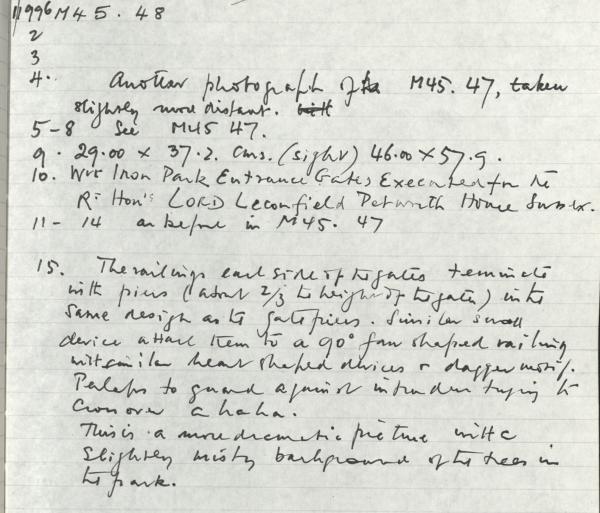 1996 M45.48
2
3
4. Another photograph of M45.47, taken
slightly more distant.
5-8 See M45 47.
9. 29.00 x 37.2. cms. (sight) 46.00 x 57.9.
10. Wrt Iron Park Entrance Gates Executed for the
Rt Hon's LORD Leconfield Petworth House Sussex.
11- 14 as before in M45. 47
15. The railings each side of the gates terminate
with piers (about 2/3 the height of the gates) in the
same design as the gatepiers. Similar small
device attach them to a 90° fan shaped railing
with similar heart shaped devices & dagger motif.
Perhaps to guard against intruders trying to
cross over a haha.
This is a more dramatic picture with a
slightly misty background of the trees in
the park.